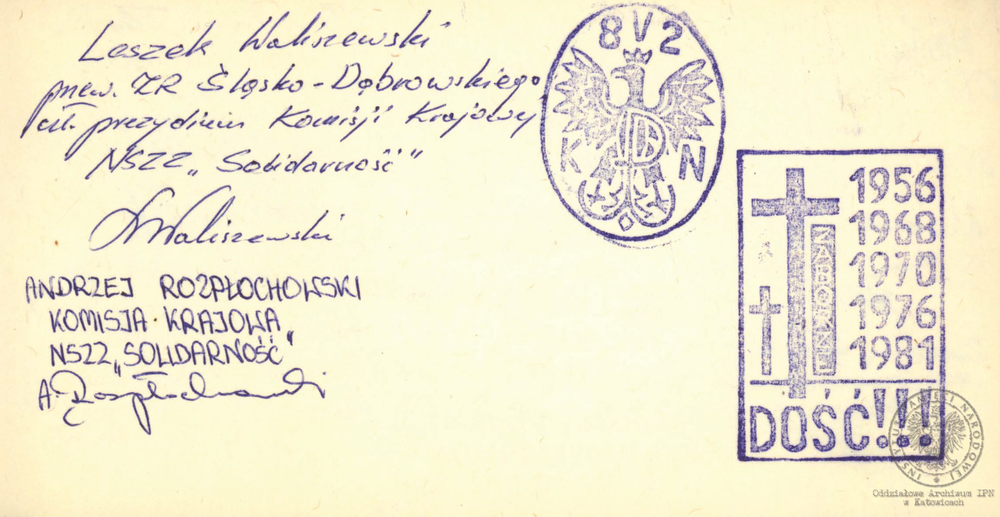 Leszek Waliszewski
przew. ZR Śląsko-Dąbrowskiego,
czł. prezydium Komisji Krajowej
NSZZ „Solidarność"
LWaliszewski
ANDRZEJ ROZPŁOCHOWSKI
KOMISJA KRAJOWA
NSZZ „SOLIDARNOŚĆ"
A. Rozpłochowski
8 V 2
K N
1956
1968
1970
1976
1981
DOŚĆ!!!
INSTYTUT PAMIĘCI NARODOWEJ
Oddziałowe Archiwum IPN
w Katowicach